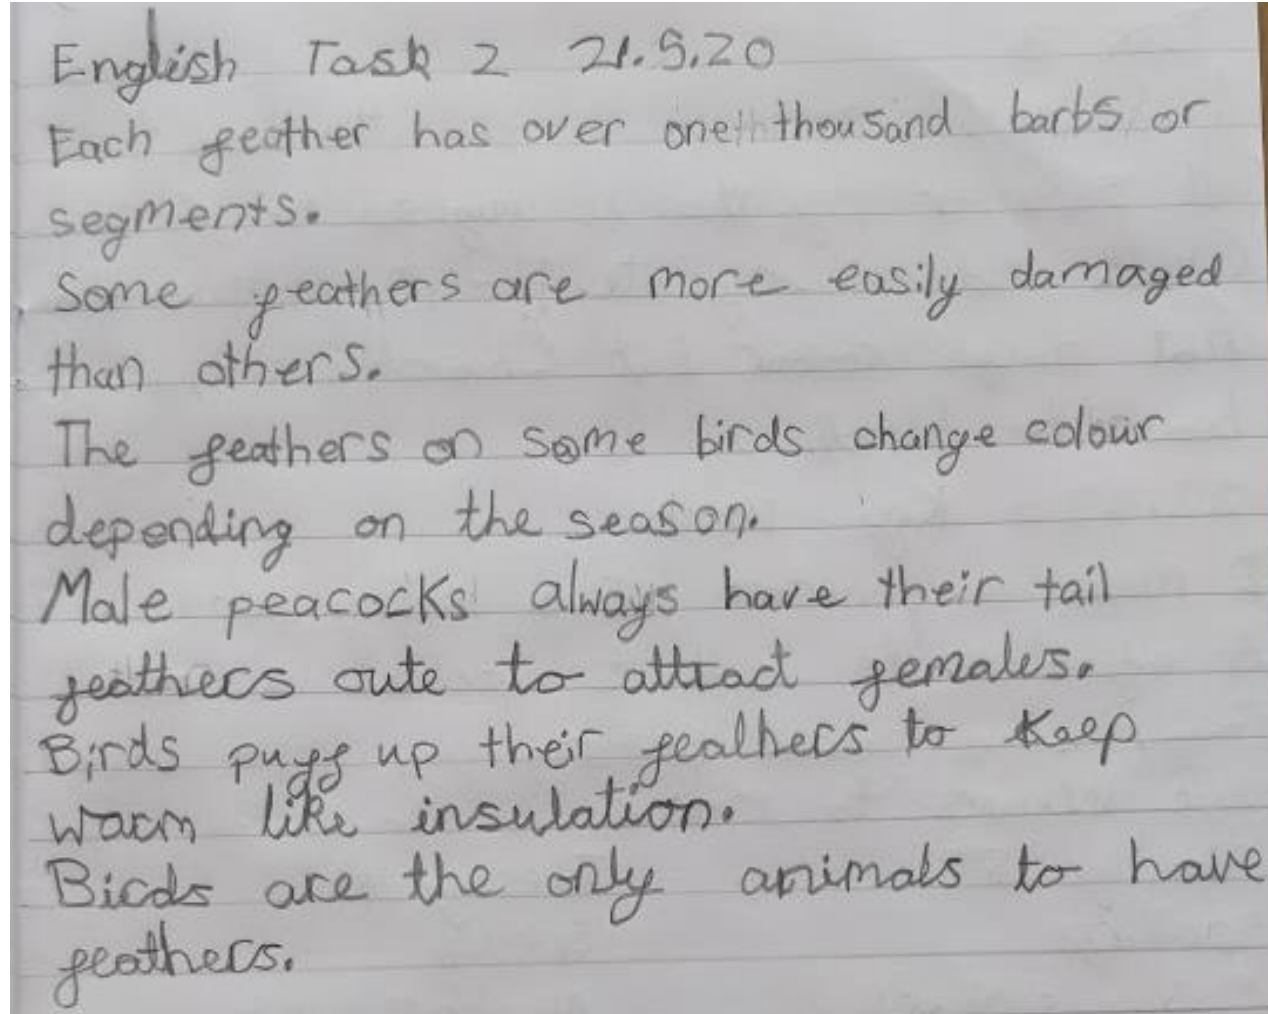 English Task 2 21.5.20
Each feather has over one thousand barbs or
segments.
Some feathers are more easily damaged
than others.
The feathers on some birds change colour
depending on the season.
Male peacocks always have their tail
feathers oute to attract females.
Birds puff up their feathers to keep
warm like insulation.
Birds are the only animals to have
feathers.